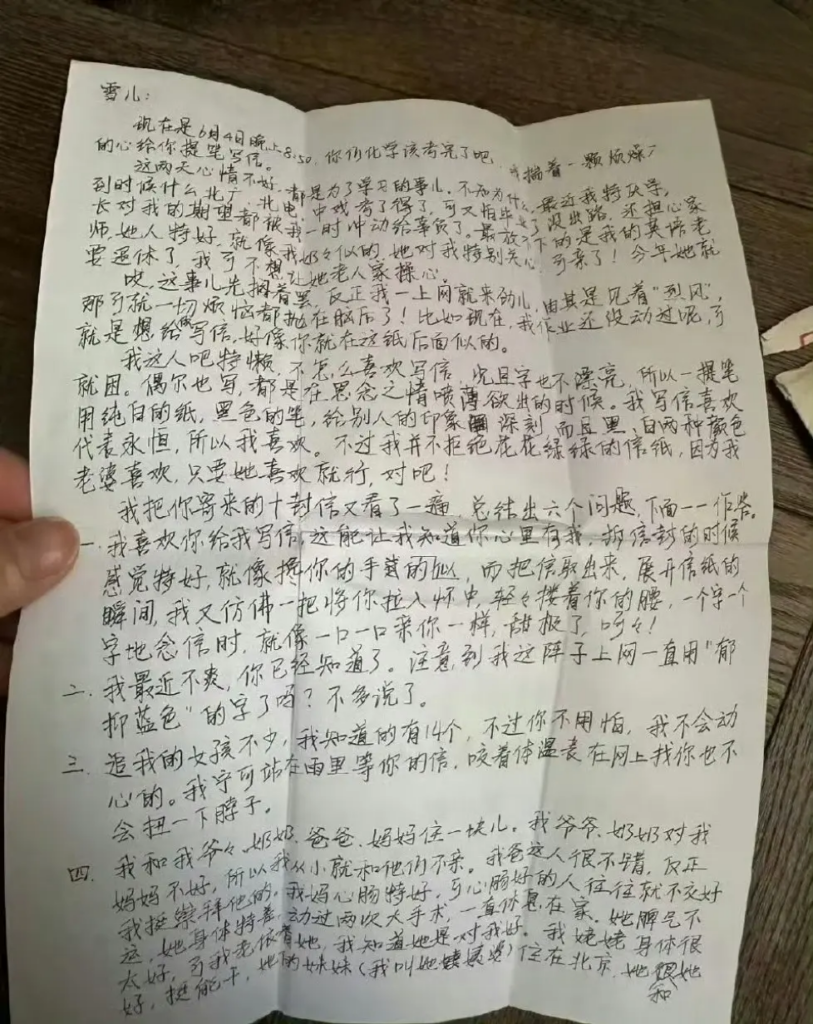 雪儿：
现在是6月4日晚上8:50，你们化学该考完了吧，我揣着一颗烦燥
的心给你提笔写信。
这两天心情不好，都是为了学习的事儿。不知为什么，最近我特厌学，
到时候什么北广、北电、中戏考了得了，可又怕毕业了没出路，还担心家
长对我的期望都被我一时冲动给辜负了。最放不下的是我的英语老
师，她人特好，就像我奶々似的，她对我特别关心，可亲了！今年她就
要退休了，我可不想让她老人家操心。
哎，这事儿先搁着罢，反正我一上网就来劲儿，由其是见着“烈风”，
那可就一切烦恼都抛在脑后了！比如现在，我作业还没动过呢，可
就是想给你写信，好像你就在这纸后面似的。
我这人吧特懒，不怎么喜欢写信，况且字也不漂亮，所以一提笔
就困。偶尔也写，都是在思念之情喷薄欲出的时候。我写信喜欢
用纯白的纸，黑色的笔，给别人的印象深刻，而且黑、白两种颜色
代表永恒，所以我喜欢。不过我并不拒绝花花绿绿的信纸，因为我
老婆喜欢，只要她喜欢就行，对吧！
我把你寄来的十封信又看了一遍，总结出六个问题，下面一一作答。
一、我喜欢你给我写信，这能让我知道你心里有我，拆信封的时候
感觉特好，就像搀你的手似的，而把信取出来，展开信纸的
瞬间，我又仿佛一把将你拉入怀中，轻々搂着你的腰，一个字一个
字地念信时，就像一口一口亲你一样，甜极了，呵々！
二、我最近不爽，你已经知道了。注意到我这阵子上网一直用“郁
抑蓝色”的字了吗？不多说了。
三、追我的女孩不少，我知道的有14个，不过你不用怕，我不会动
心的。我宁可站在雨里等你的信，咬着体温表在网上找你也不
会扭一下脖子。
四、我和我爷々、奶奶、爸爸、妈妈住一块儿。我爷爷、奶奶对我
妈妈不好，所以我从小就和他们不亲。我爸这人很不错，反正
我挺崇拜他的。我妈心肠特好，可心肠好的人往往就不交好
运，她身体特差，动过两次大手术，一直休息在家。她脾气不
太好，可我老依着她，我知道她是对我好。我姥姥身体很
好，挺能干，她的妹妹（我叫她姨婆）住在北京，她和她